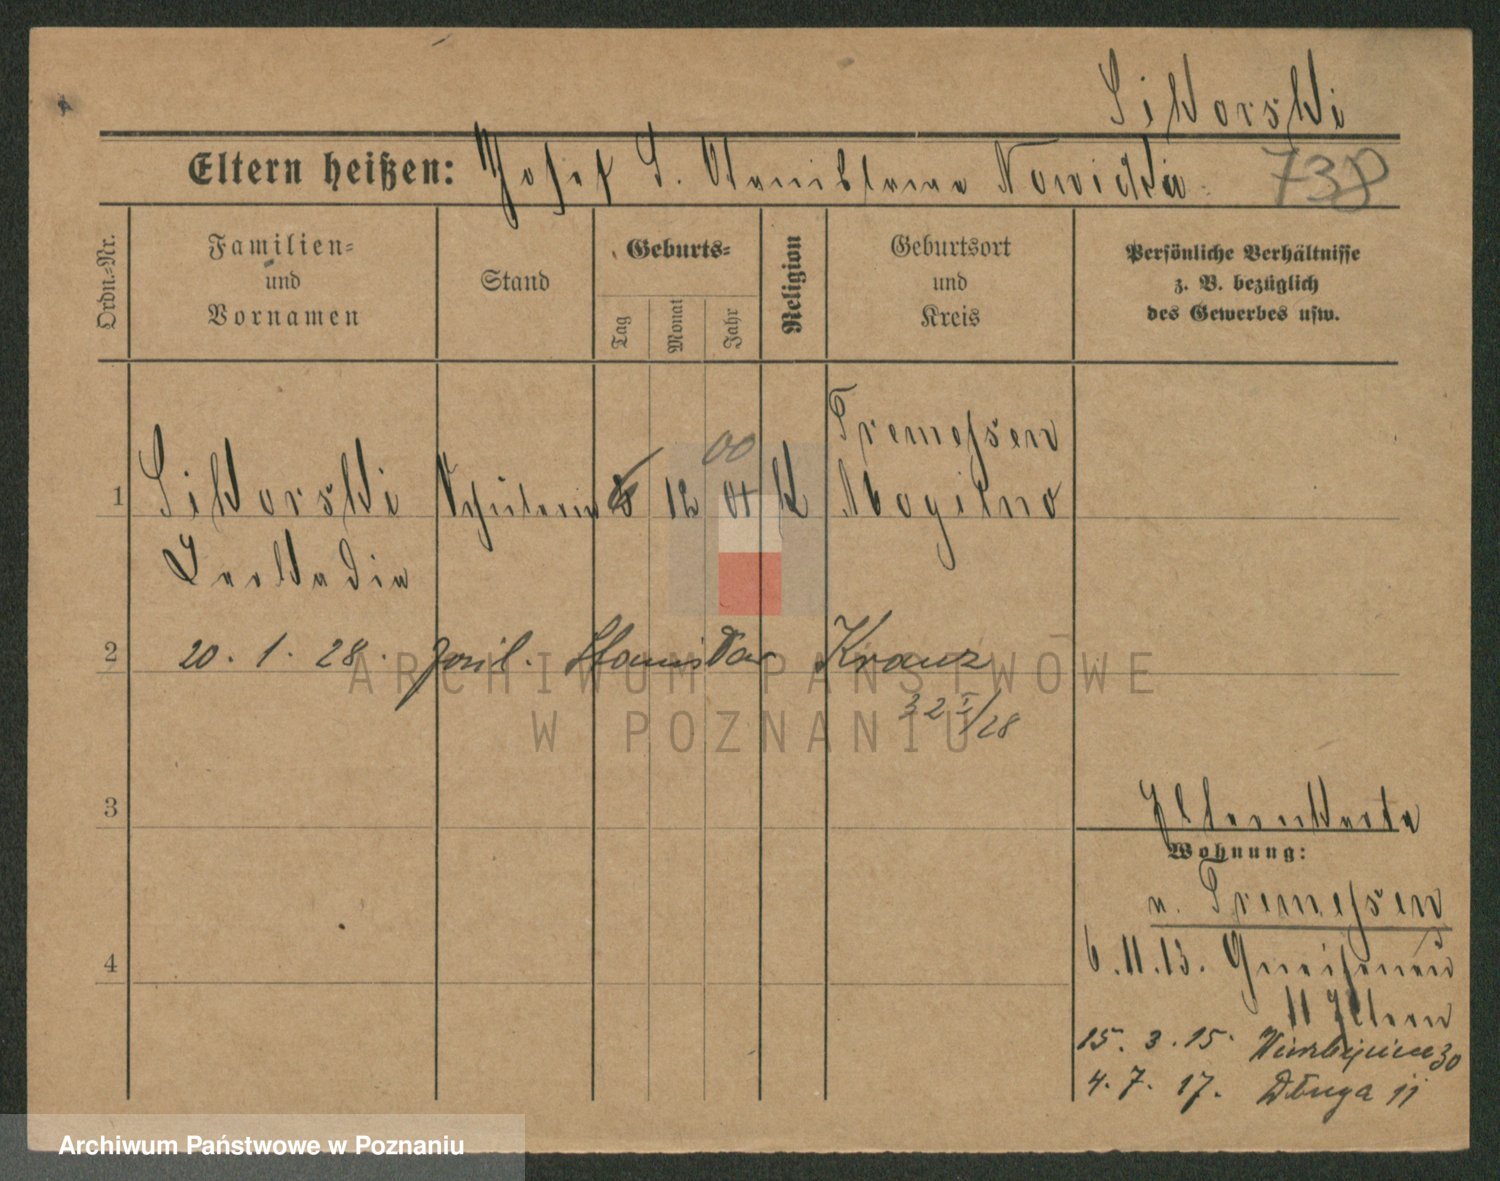 Sikorski
Eltern heißen: Josef S. Stanislawa Nowicka 738
Ordn.-Nr.
Familien-
und
Vornamen
Stand
Geburts-
Tag
Monat
Jahr
Religion
Geburtsort
und
Kreis
Persönliche Verhältnisse
z. B. bezüglich
des Gewerbes usw.
00
Tremessen
1 Sikorski Schülerin 12 01 K Mogilno
Leokadia
2 20. 1. 28. Stanisław Kranz
32 I/28
3
Elternkarte
Wohnung:
v. Tremessen
4
6.11.13. Gneisenau
11 Eltern
15. 3. 15. 30
4. 7. 17. Długa 11
ARCHIWUM PAŃSTWOWE
W POZNANIU
Archiwum Państwowe w Poznaniu